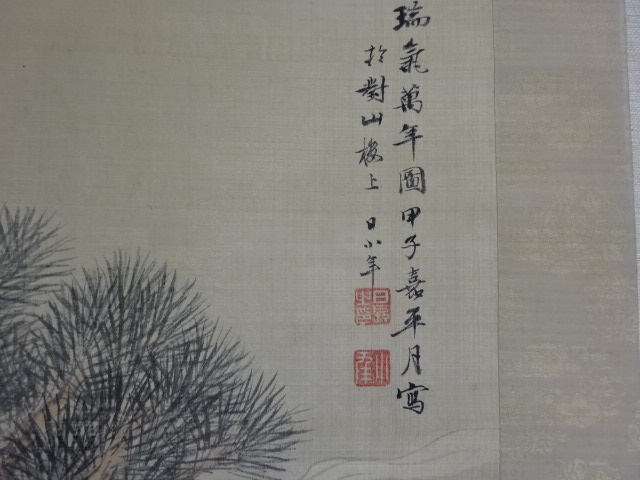 瑞氣萬年圖甲子嘉平月寫
於對山楼上 日小年